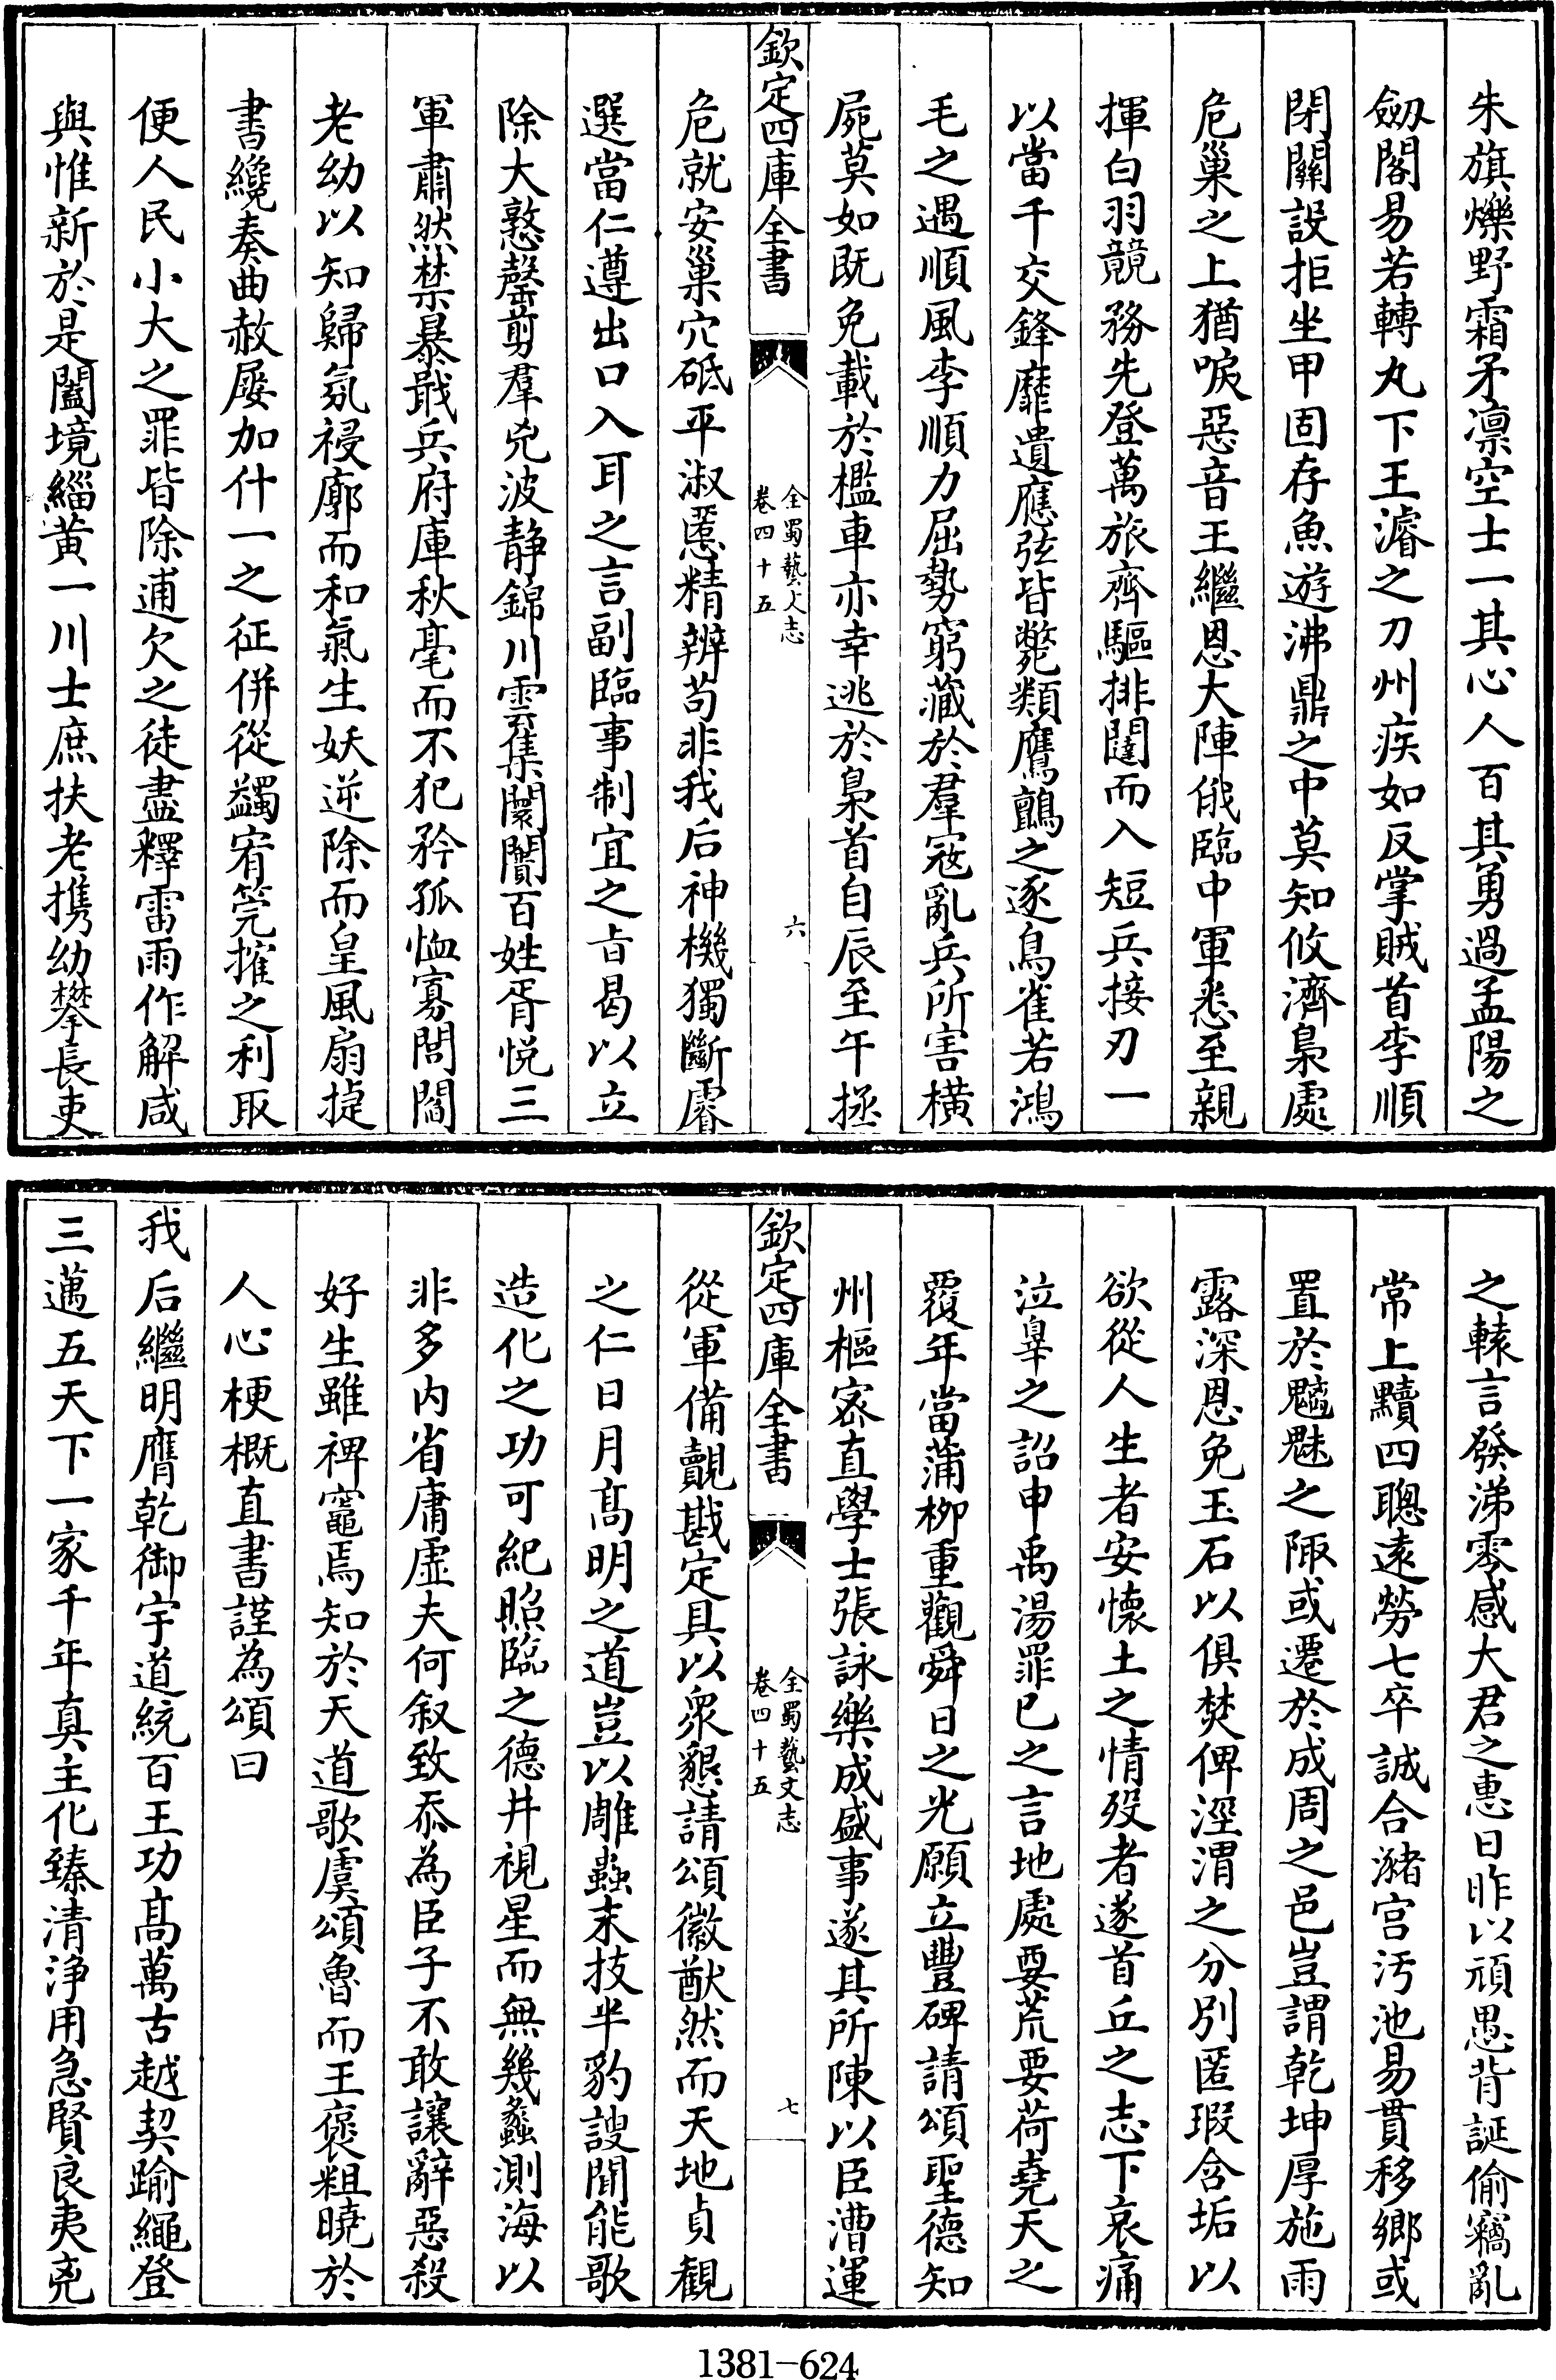 朱旗爍野霜矛凛空士一其心人百其勇過孟陽之
劔閣易若轉丸下王濬之刀州疾如反掌賊首李順
閉關設拒坐甲固存魚遊沸鼎之中莫知攸濟梟處
危巢之上猶唳惡音王繼恩大陣俄臨中軍悉至親
揮白羽競務先登萬旅齊驅排闥而入短兵接刃一
以當千交鋒靡遺應弦皆斃類鷹鸇之逐鳥雀若鴻
毛之遇順風李順力屈勢窮藏於羣寇亂兵所害橫
屍莫如既免載於檻車亦幸逃於梟首自辰至午拯
欽定四庫全書
全蜀藝文志
卷四十五
六
危就安巢穴砥平淑慝精辨苟非我后神機獨斷睿
選當仁遵出口入耳之言副臨事制宜之旨曷以立
除大憝罄剪羣兇波静錦川雲集闤闠百姓胥悦三
軍肅然禁暴戢兵府庫秋毫而不犯矜孤恤寡閭閻
老幼以知歸氛祲廓而和氣生妖逆除而皇風扇捷
書纔奏曲赦屢加什一之征併從蠲宥筦摧之利取
便人民小大之罪皆除逋欠之徒盡釋雷雨作解咸
與惟新於是闔境緇黄一川士庶扶老携幼攀長吏
之轅言發涕零感大君之惠日昨以頑愚背誕偷竊亂
常上黷四聰遠勞七卒誠合瀦宫汚池易貫移鄉或
置於魑魅之陬或遷於成周之邑豈謂乾坤厚施雨
露深恩免玉石以俱焚俾涇渭之分别匿瑕含垢以
欲從人生者安懷土之情殁者遂首丘之志下哀痛
泣辜之詔申禹湯罪已之言地處要荒要荷堯天之
覆年當蒲柳重觀舜日之光願立豐碑請頌聖德知
州樞宻直學士張詠樂成盛事遂其所陳以臣漕運
欽定四庫全書
全蜀藝文志
卷四十五
七
從軍備覩戡定具以衆懇請頌徽猷然而天地貞觀
之仁日月髙明之道豈以雕蟲末技半豹謏聞能歌
造化之功可紀照臨之德井視星而無幾蠡測海以
非多内省庸虚夫何叙致忝為臣子不敢讓辭惡殺
好生雖禆竈焉知於天道歌虞頌魯而王褒粗曉於
人心梗概直書謹為頌曰
我后繼明膺乾御宇道統百王功髙萬古越契踰繩登
三邁五天下一家千年真主化臻清浄用急賢良夷兇
1381-624